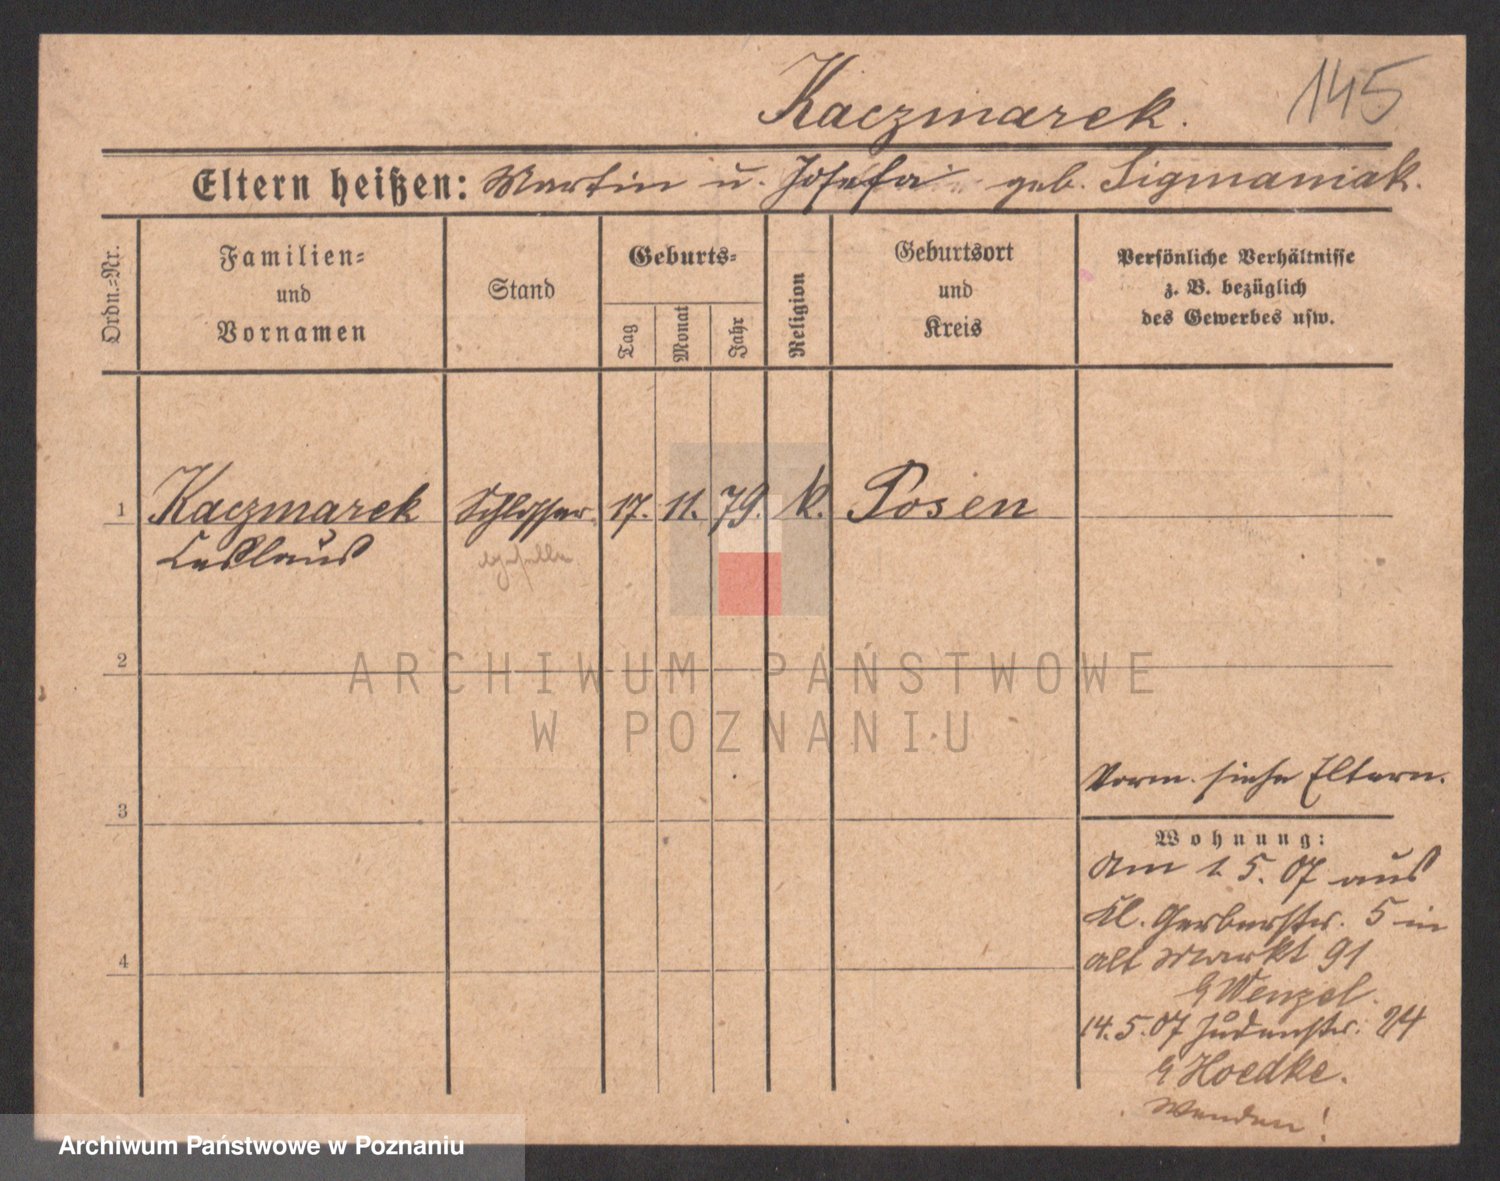 Kaczmarek.
145
Eltern heißen: Martin u. Josefa geb. Sigmaniak.
Ordn.=Nr.
Familien= und Vornamen
Stand
Geburts=
Tag
Monat
Jahr
Religion
Geburtsort und Kreis
Persönliche Verhältnisse
z. B. bezüglich
des Gewerbes usw.
1 Kaczmarek Schlosser 17. 11. 79. k. Posen
Ceslaus geselle
2
ARCHIWUM PAŃSTWOWE
W POZNANIU
Vorm. siehe Eltern.
3
Wohnung:
Am 1. 5. 07 aus
Kl. Gerberstr. 5 in
Alt Markt 91
4
b Wenzel.
14. 5. 07 Judenstr. 24
b Hoedke.
Wenden!
Archiwum Państwowe w Poznaniu